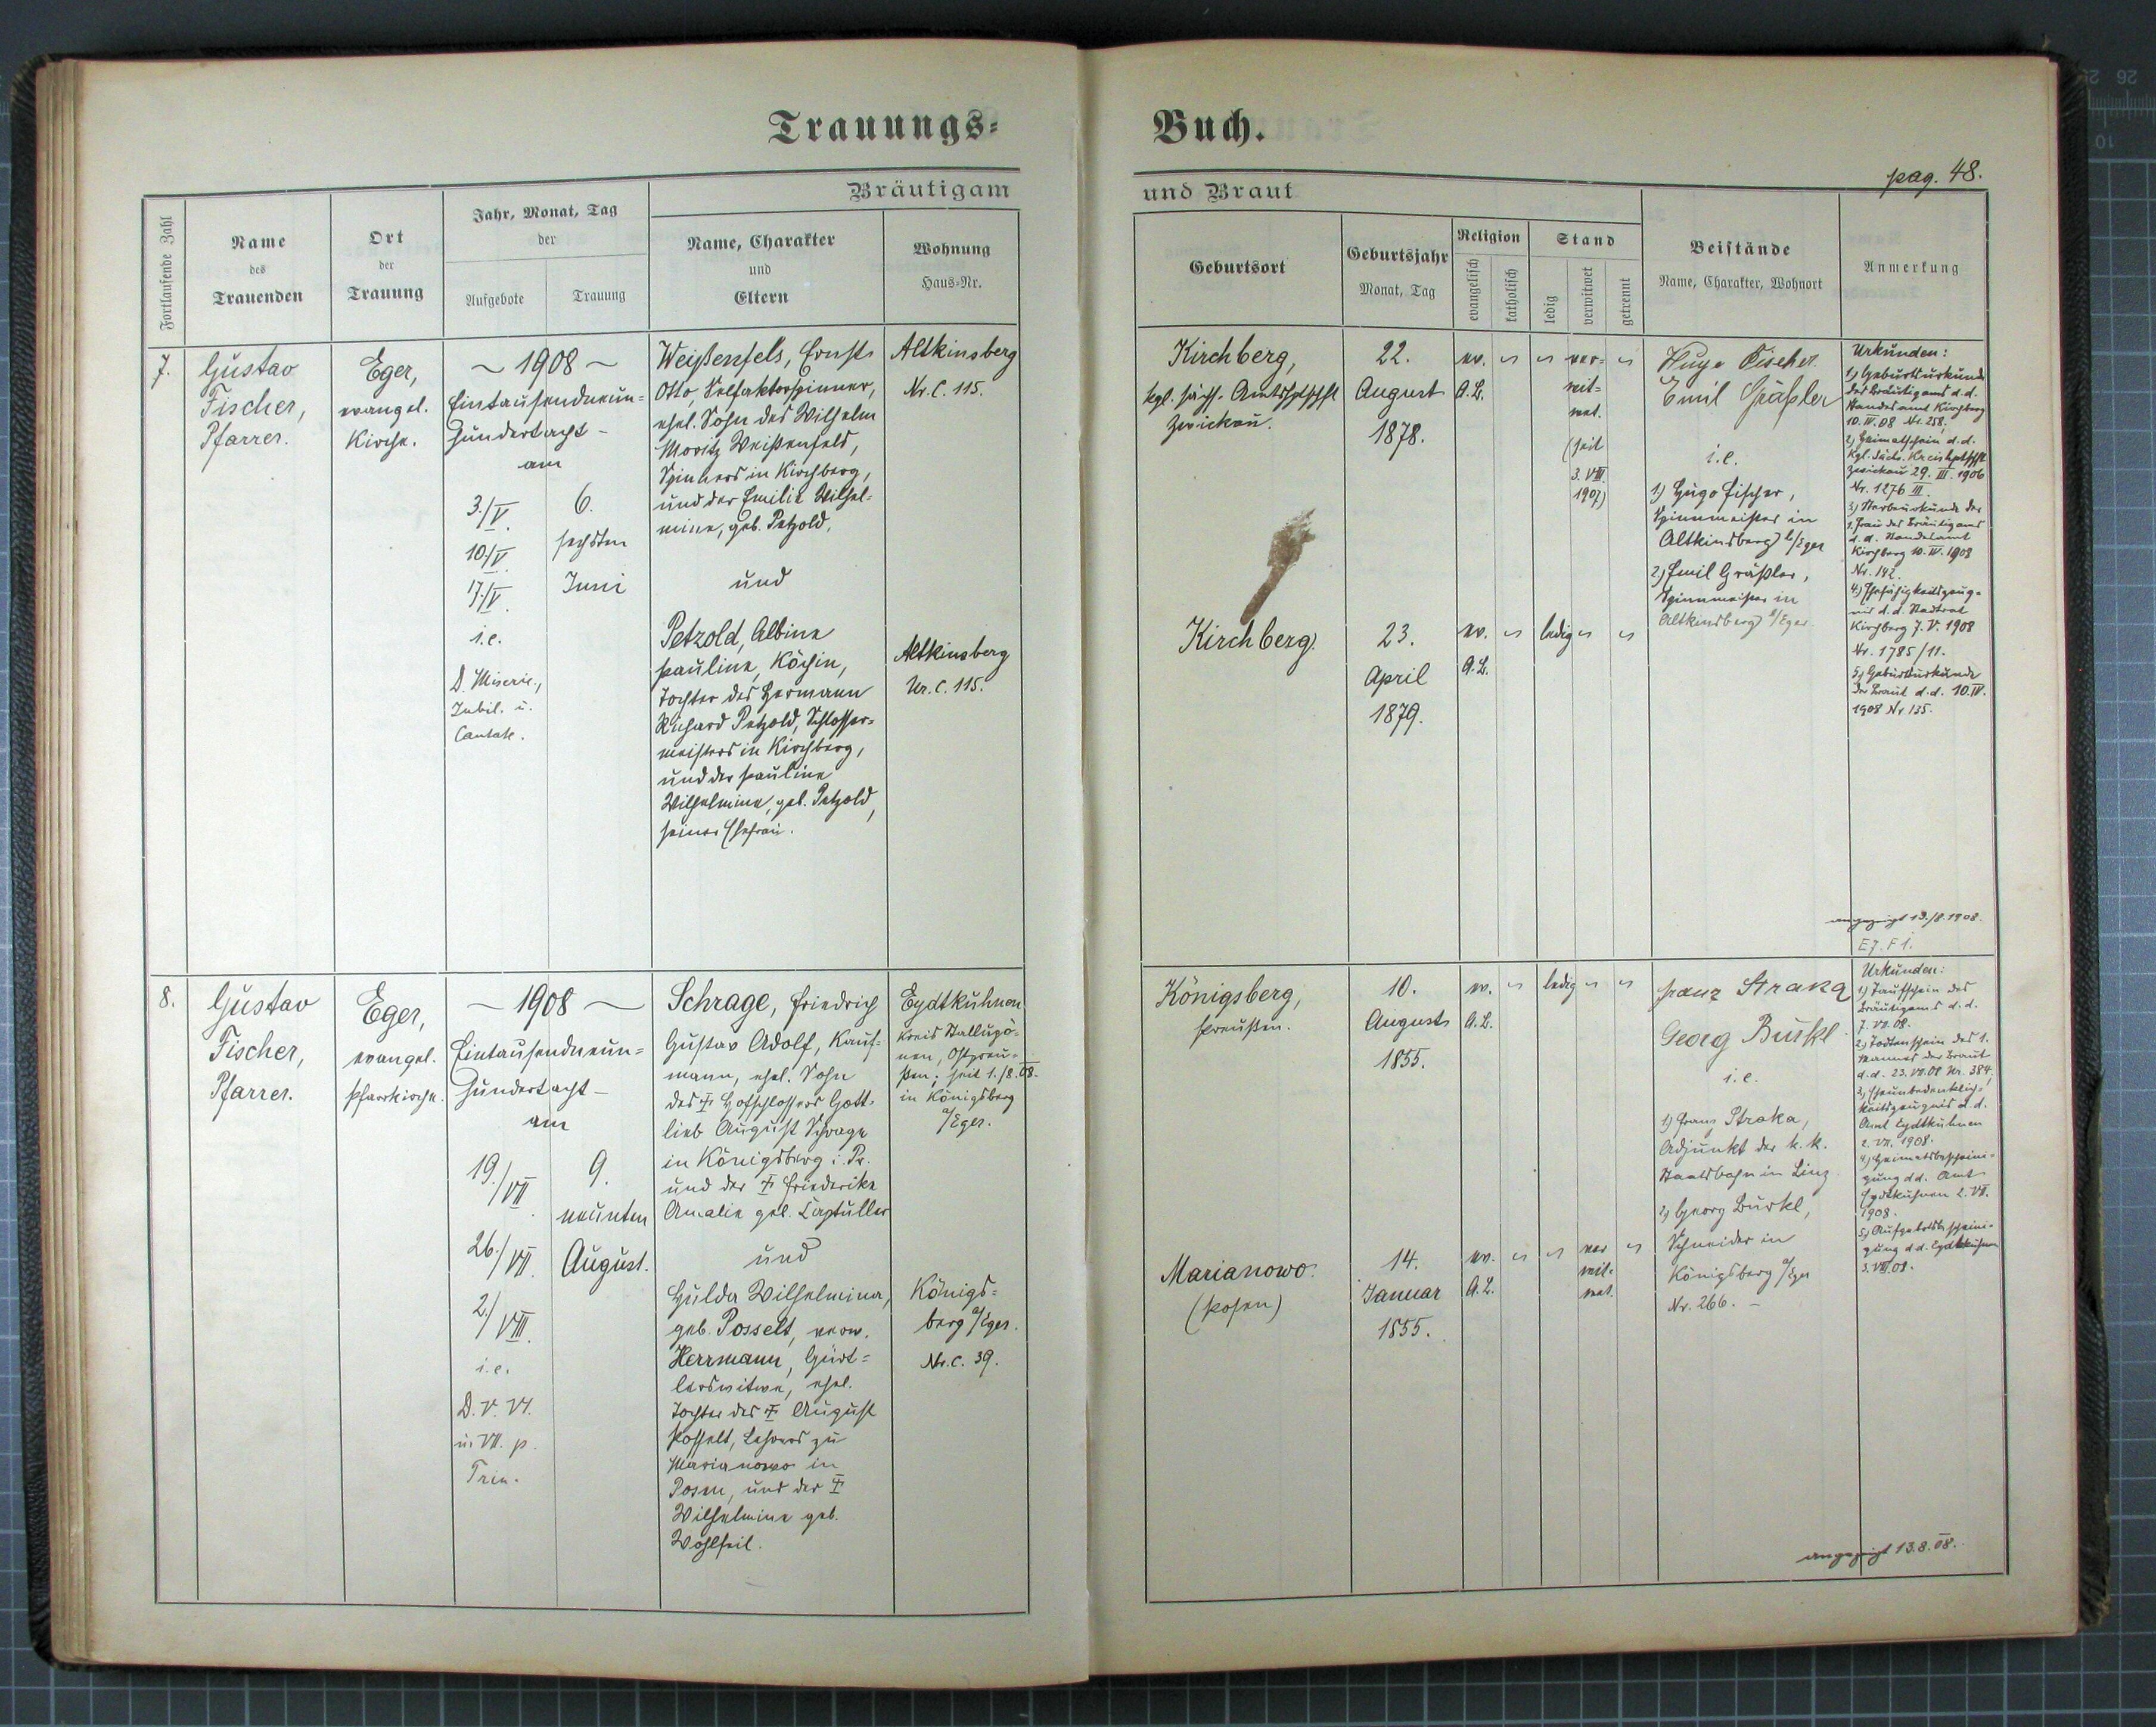 Trauungs-
Buch.
pag. 48.
Bräutigam
und Braut
Fortlaufende Zahl
Name
des
Trauenden
Ort
der
Trauung
Jahr, Monat, Tag
der
Aufgebote
Trauung
Name, Charakter
und
Eltern
Wohnung
Haus-Nr.
Geburtsort
Geburtsjahr
Monat, Tag
Religion
evangelisch
katholisch
Stand
ledig
verwitwet
getrennt
Beistände
Name, Charakter, Wohnort
Anmerkung
7.
Gustav
Fischer,
Pfarrer.
Eger,
evangel.
Kirche.
~ 1908 ~
Eintausendneun=
hundertacht -
am
3./V.
10./V.
17./V.
i.e.
D. Miseric.,
Jubil. u.
Cantate.
6.
sechsten
Juni
Weißenfels, Ernst
Otto, Selfaktorspinner,
ehel. Sohn des Wilhelm
Moritz Weißenfels,
Spinners in Kirchberg,
und der Emilie Wilhel=
mine, geb. Petzold,
und
Petzold, Albine
Pauline, Köchin,
Tochter des Hermann
Richard Petzold, Schlosser=
meisters in Kirchberg,
und der Pauline
Wilhelmine, geb. Petzold,
seiner Ehefrau.
Altkinsberg
Nr. C. 115.
Altkinsberg
Nr. C. 115.
Kirchberg,
kgl. sächs. Amtshptschft
Zwickau.
22.
August
1878.
ev.
A.B.
ver=
wit=
wet.
(seit
3. VIII.
1907)
Kirchberg.
23.
April
1879.
ev.
A.B.
ledig
Hugo Fischer
Emil Gräßler
i.e.
1) Hugo Fischer,
Spinnmeister in
Altkinsberg b/Eger
2) Emil Gräßler,
Spinnmeister in
Altkinsberg b/Eger
Urkunden:
1) Geburtsurkunde
des Bräutigams d.d.
Standesamt Kirchberg
10. IV. 08 Nr. 258.
2) Heimatschein d.d.
Kgl. Sächs. Kreishptschft
Zwickau 29. III. 1906
Nr. 1276 III.
3) Sterbeurkunde der
1. Frau des Bräutigams
d.d. Standesamt
Kirchberg 10. IV. 1908
Nr. 142.
4.) Ehefähigkeitszeug-
nis d.d. Stadtrat
Kirchberg 7. V. 1908
Nr. 1785/11.
5) Geburtsurkunde
der Braut d.d. 10. IV.
1908 Nr 135.
angezeigt 13./8. 1908.
E7. F1.
8.
Gustav
Fischer,
Pfarrer.
Eger,
evangel.
Pfarrkirche.
- 1908 -
Eintausendneun=
hundertacht -
am
19./VII
26./VII.
2./VIII.
i.e.
D. V. VI.
u. VII. p.
Trin.
9.
neunten
August.
Schrage, Friedrich
Gustav Adolf, Kauf=
mann, ehel. Sohn
des † Hofschlossers Gott=
lieb August Schrage
in Königsberg i. Pr.
und der † Friederike
Amalie geb.
und
Hulda Wilhelmina,
geb. Posselt, verw.
Herrmann, Gürt=
lerswitwe, ehel.
Tochter des † August
Posselt, Lehrers zu
Marianowo in
Posen, und der †
Wilhelmine geb.
Wohlfeil.
Eydtkuhnen
Kreis Stallupö-
nen, Ostpreu-
ßen; seit 1./8. 08.
in Königsberg
a/Eger.
Königs=
berg a/Eger.
Nr. C. 39.
Königsberg,
Preußen.
10.
August
1855.
ev.
A.B.
ledig
Marianowo.
(Posen)
14.
Januar
1855.
ev.
A.B.
ver
wit=
wet.
Franz Straka
Georg Bürkl
i.e.
1) Franz Straka,
Adjunkt der k. k.
Staatsbahn in Linz
2) Georg Bürkl,
Schneider in
Königsberg a/Eger
Nr. 266. -
Urkunden:
1) Taufschein des
Bräutigams d.d.
7. VII. 08.
2) Todtenschein des 1.
Mannes der Braut
d.d. 23. VII. 08 Nr. 384.
3) Eheunbedenklich=
keitszeugnis d.d.
Amt Eydtkuhnen
2. VII. 1908.
4) Heimatsbescheini=
gung d.d. Amt
Eydtkuhnen 2. VII.
1908.
5) Aufgebotsbescheini-
gung d.d. Eydtkuhnen
3. VIII. 08.
angezeigt 13. 8. 08.